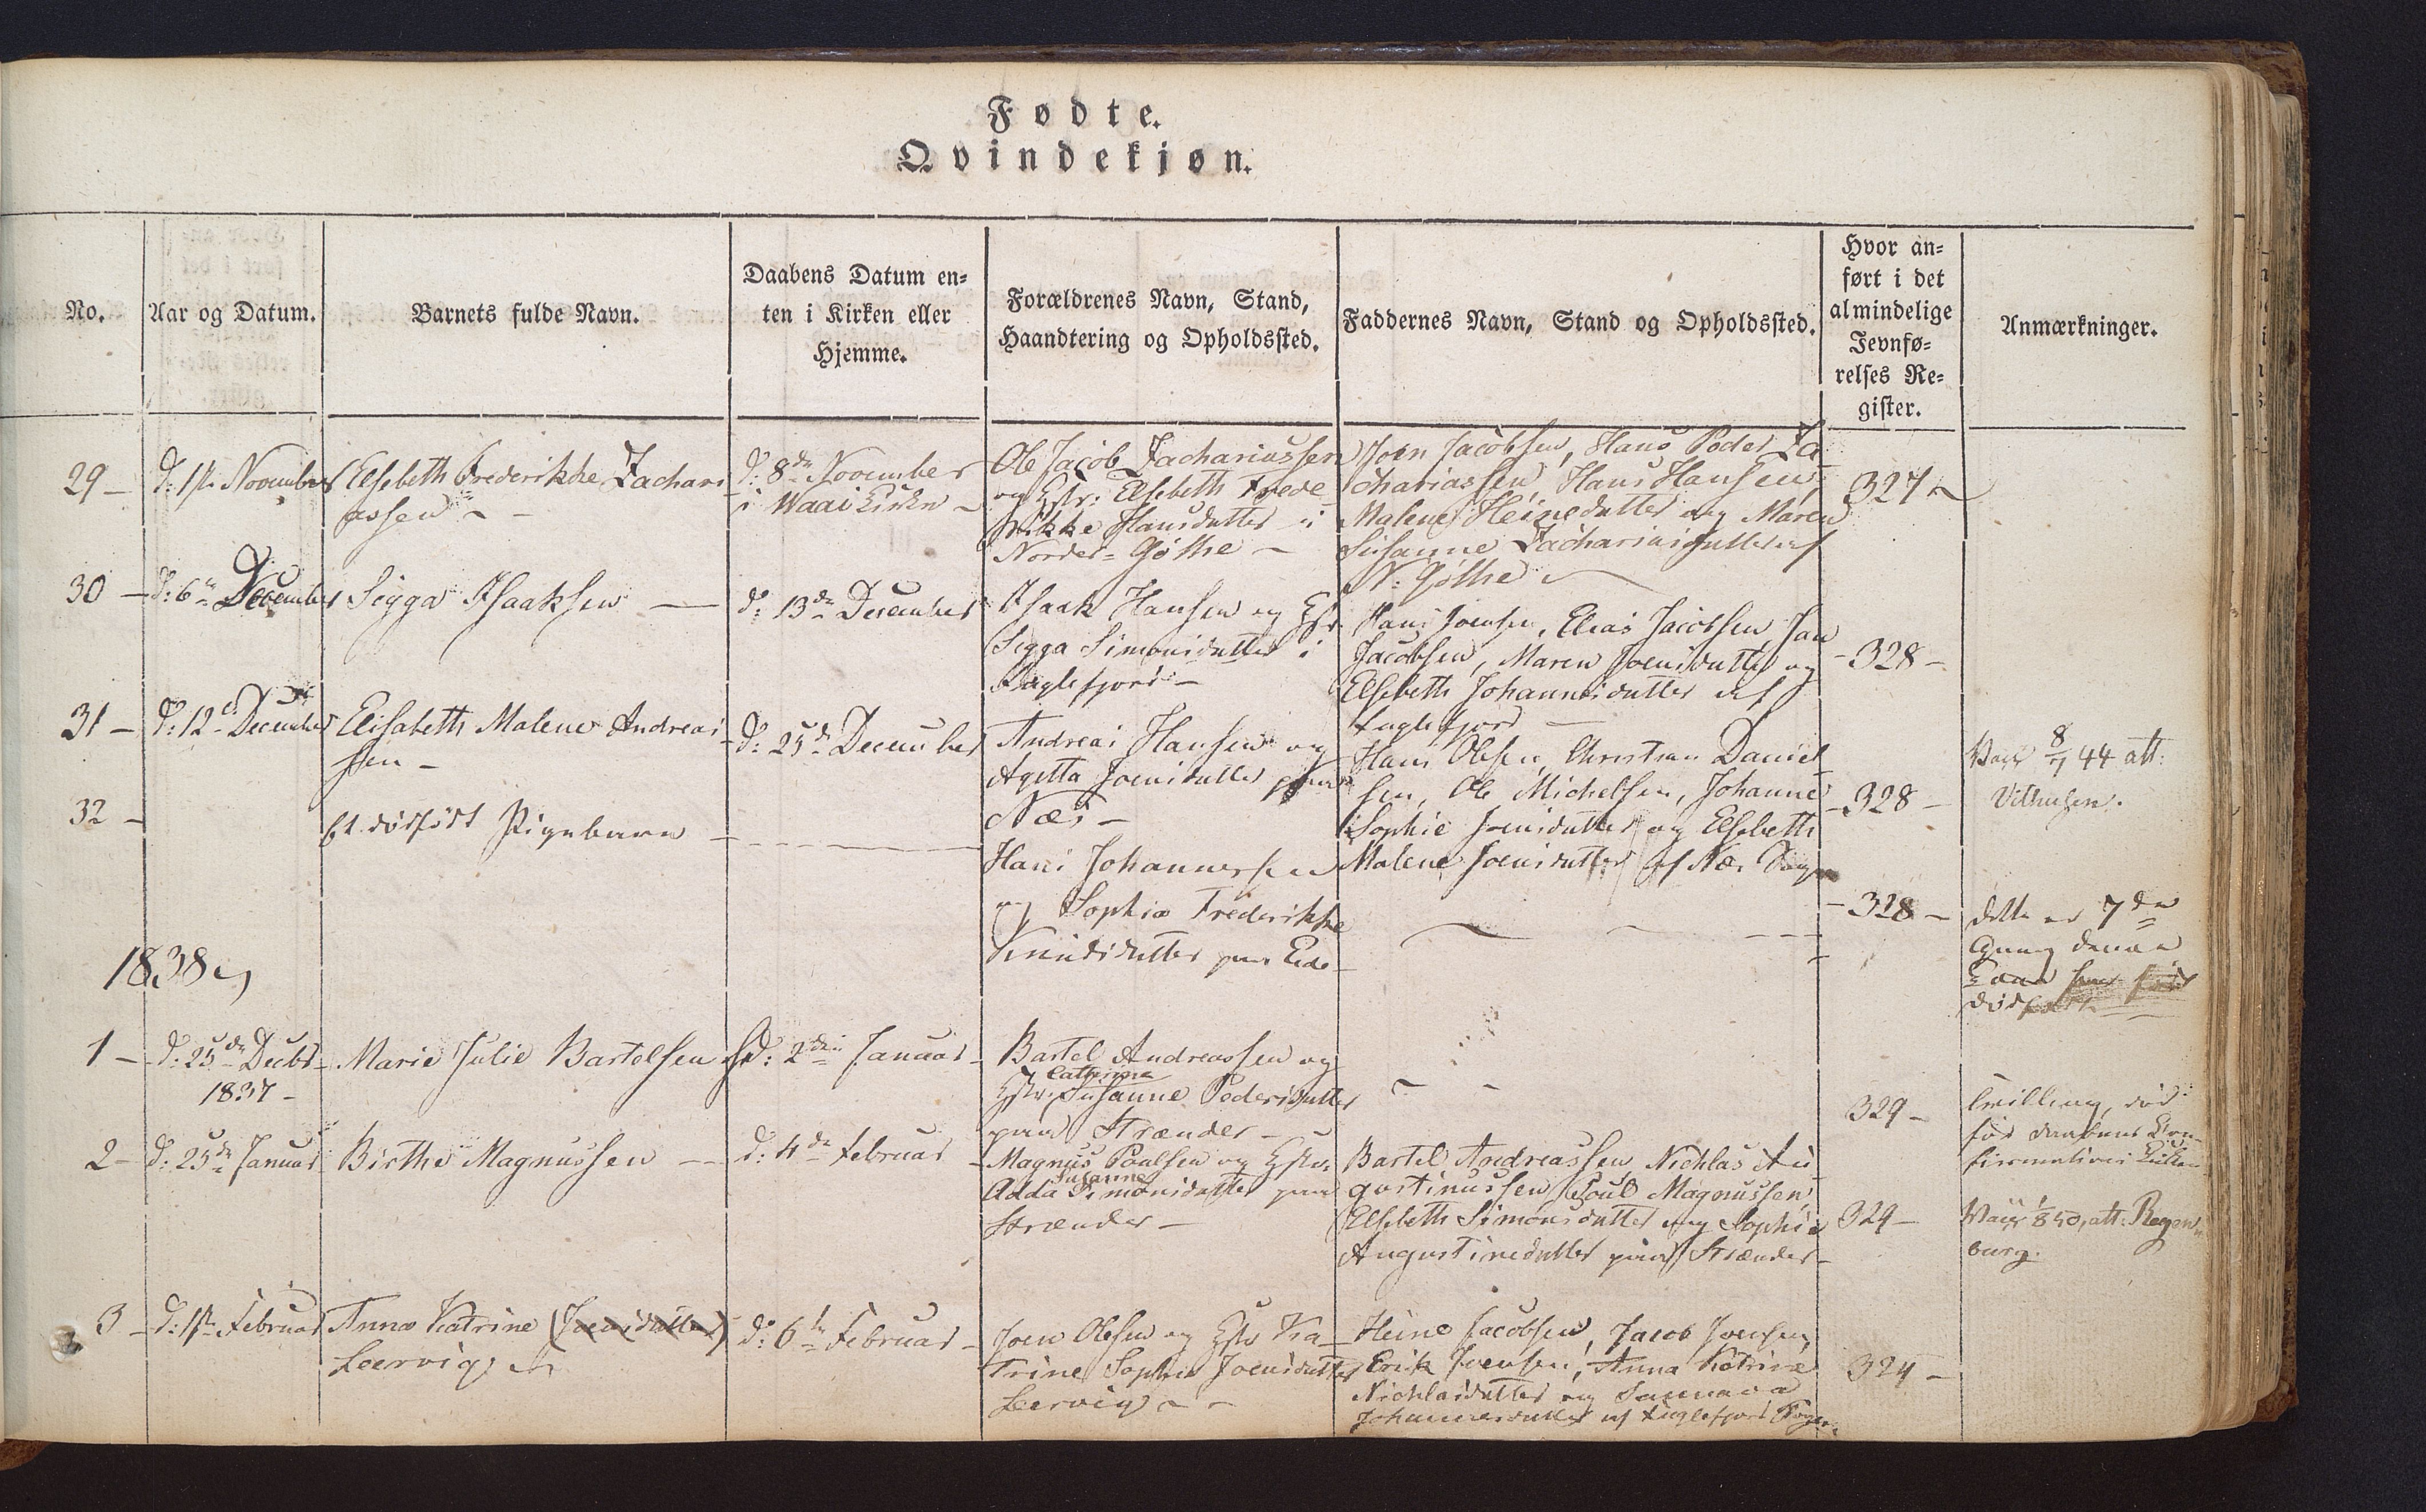 Fødte.
Qvindekjøn.
No.
Aar og Datum.
Barnets fulde Navn.
Daabens Datum en-
ten i Kirken eller
Hjemme.
Forældrenes Navn, Stand,
Haandtering og Opholdssted.
Faddernes Navn, Stand og Opholdssted.
Hvor an-
ført i det
almindelige
Jevnfø-
relses Re-
gister.
Anmærkninger.
29 -
d: 1ste November
Elsebeth Frederikke Zachari
assen
d: 8de November
i Waai Kirke
Ole Jacob Zachariassen
og Hstr: Elsebeth Frede
rikke Hansdatter i
Norder-Gøthe
Joen Jacobsen, Hans Peder Za
chariassen, Hans Hansen,
Malene Heinedatter og Maren
Susanne Zachariasdatter af
N: Gøthe
327
30 -
d: 6te December
Sigga Isaaksen
d: 13de December
Isaak Hansen og Hstr
Sigga Simonsdatter i
Fuglefjord -
Hans Joensen, Elias Jacobsen, Jan
Jacobsen, Maren Joensdatter og
Elsebeth Johannesdatter af
Fuglefjord
- 328 -
31 -
d: 12te December
Elisabeth Malene Andreas
sen -
d: 25de December
Andreas Hansen og
Agetta Joensdatter paa
Næs -
Hans Olesen, Christian Daniel
sen, Ole Michelsen, Johanne
Sophie Joensdatter og Elsebeth
Malene Joensdatter af Næs Bøyden
- 328 -
Vacc 8/7 44 att:
Vilhelsen.
32 -
Et dødfødt Pigebarn -
Hans Johannessen
og Sophia Frederikke
Knudsdatter paa Eide -
- 328 -
dette er 7de
Gang denne
Kone har født
dødfødt
1838
1 -
d: 25de Decbr -
1837 -
Marie Julie Bartelsen
d: 2den Januar -
Bartel Andreassen og
Cathrine
Hstr: Susanne Pedersdatter
paa Strænder -
329 -
Tvilling, død
før Daabens Con-
firmation i Kirken
2 -
d: 25de Januar
Birthe Magnussen
d: 4de Februar
Magnus Poulsen og Hstr:
Susanne
Adda Simonsdatter paa
Strænder -
Bartel Andreassen, Nichlas Au
gustinussen, Poul Magnussen,
Elsebeth Simonsdatter og Sophie
Augustinedatter paa Strænder -
329 -
Vacc 1/8 50, att: Regen
burg.
3 -
d: 1ste Februar
Anna Katrine (Joensdatter)
Leervig
d: 6te Februar -
Joen Olesen og Hstr Ka-
trine Sophie Joensdatter
Leervig
Heine Jacobsen, Jacob Joensen,
Erik Joensen, Anna Katrine
Nichlasdatter og Sannava
Johannesdatter af Fuglefjord Bøyden.
329 -